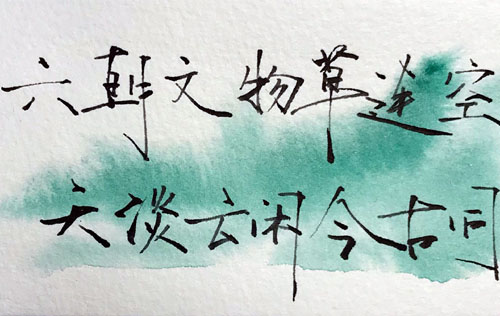 六朝文物草连空
天淡云闲今古同